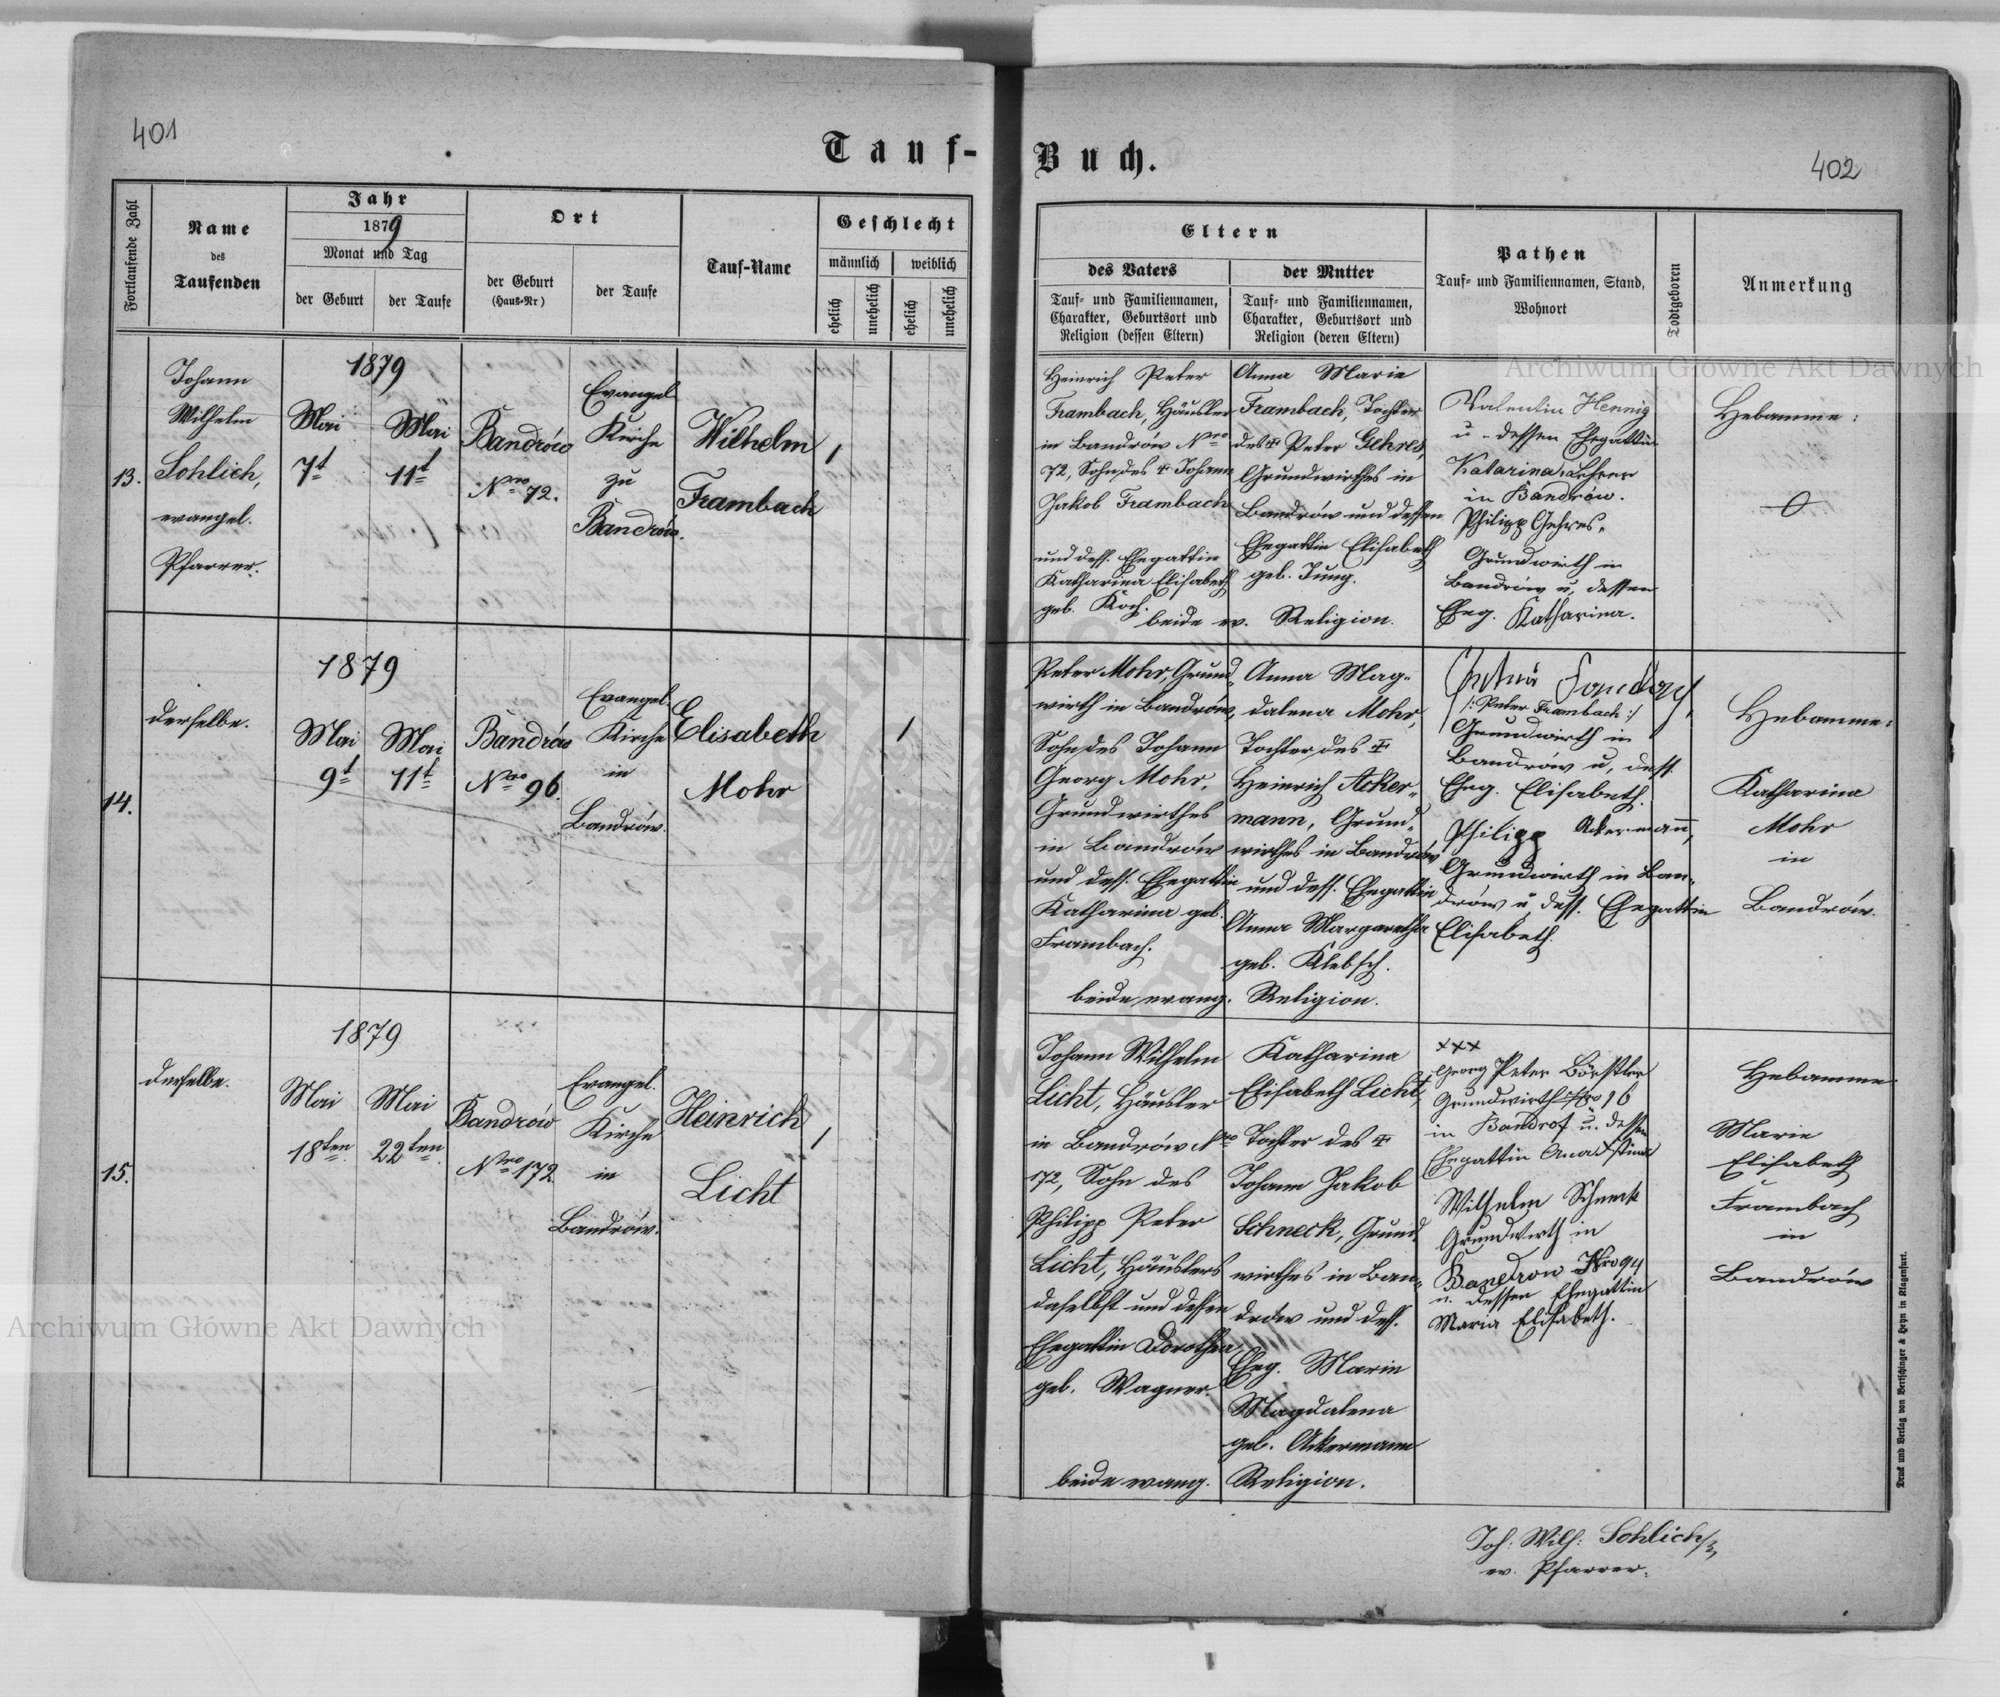 401
402
Tauf-
Buch.
Fortlaufende Zahl
Name
des
Taufenden
Jahr
1879
Monat und Tag
der Geburt
der Taufe
Ort
der Geburt
(Haus-Nr)
der Taufe
Tauf-Name
Geschlecht
männlich
weiblich
ehelich
unehelich
ehelich
unehelich
Eltern
des Vaters
der Mutter
Tauf- und Familiennamen,
Charakter, Geburtsort und
Religion (dessen Eltern)
Tauf- und Familiennamen,
Charakter, Geburtsort und
Religion (deren Eltern)
Pathen
Tauf- und Familiennamen, Stand,
Wohnort
Todtgeboren
Anmerkung
13.
Johann
Wilhelm
Sohlich,
evangel.
Pfarrer.
1879
Mai
7t
Mai
11t
Bandrów
Nro 72.
Evangel.
Kirche
zu
Bandrów.
Wilhelm
Frambach
1
Heinrich Peter
Frambach, Häusler
in Bandrów Nro
72, Sohn des † Johann
Jakob Frambach
und dess. Ehegattin
Katharina Elisabeth
geb. Koch.
Anna Marie
Frambach, Tochter
des † Peter Gehres,
Grundwirthes in
Bandrów und dessen
Ehegattin Elisabeth
geb. Jung.
beide ev. Religion.
Valentin Hennig
u. dessen Ehegattin
Katarina, Lehrer
in Bandrów.
Philipp Gehres,
Grundwirth in
Bandrów u. dessen
Eheg. Katharina.
Hebamme:
0
14.
derselbe.
1879
Mai
9t
Mai
11t
Bandrów
Nro 96.
Evangel.
Kirche
in
Bandrów.
Elisabeth
Mohr
1
Peter Mohr, Grund-
wirth in Bandrów,
Sohn des Johann
Georg Mohr,
Grundwirthes
in Bandrów
und dess. Ehegattin
Katharina geb.
Frambach.
Anna Mag-
dalena Mohr,
Tochter des †
Heinrich Acker-
mann, Grund-
wirthes in Bandrów
und dess. Ehegattin
Anna Margaretha
geb. Klebsch.
beide evang. Religion.
/: Peter Frambach :/
Grundwirth in
Bandrów u. dess.
Eheg. Elisabeth.
Philipp Akermann,
Grundwirth in Ban-
drów u. dess. Ehegattin
Elisabeth.
Hebamme:
Katharina
Mohr
in
Bandrów.
15.
derselbe.
1879
Mai
18ten
Mai
22ten
Bandrów
Nro 172
Evangel.
Kirche
in
Bandrów.
Heinrich
Licht
1
Johann Wilhelm
Licht, Häusler
in Bandrów Nro
172, Sohn des
Philipp Peter
Licht, Häuslers
daselbst und dessen
Ehegattin Dorothea
geb. Wagner.
Katharina
Elisabeth Licht,
Tochter des †
Johann Jakob
Schneck, Grund-
wirthes in Ban-
drów und dess.
Eheg. Marie
Magdalena
geb. Ackermann
beide evang. Religion.
xxx
Georg Peter Börstler
Grundwirth Nro 16
in Bandrof u. dessen
Ehegattin
Wilhelm Schneck
Grundwirth in
Bandrow Nro 94
u. dessen Ehegattin
Maria Elisabeth.
Hebamme
Marie
Elisabeth
Frambach
in
Bandrów
Joh: Wilh: Sohlich
ev. Pfarrer.
Druck und Verlag von Bertschinger & Heyn in Klagenfurt.
Archiwum Główne Akt Dawnych
Archiwum Główne Akt Dawnych